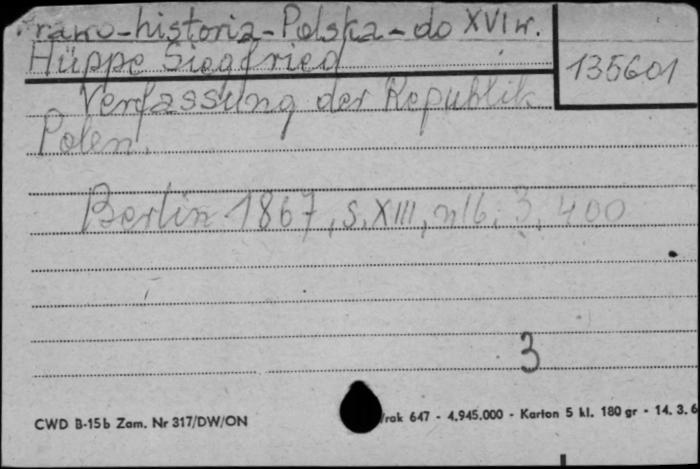 rawo-historia-Polska-do XVI w.
Hüppe Siegfried
135601
Verfassung der Republik
Polen.
Berlin 1867, s. XIII, nlb. 3, 400
3
CWD B-15b Zam. Nr 317/DW/ON
/rak 647 - 4.945.000 - Karton 5 kl. 180 gr - 14. 3. 6